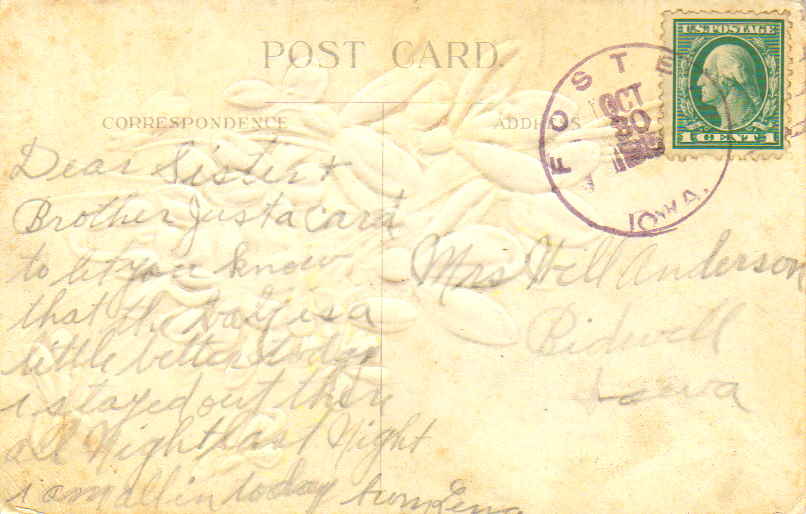 POST CARD.
CORRESPONDENCE
ADDRESS
FOSTER
OCT
30
IOWA.
U.S. POSTAGE
1 CENT 1
Dear Sister +
Brother Just a card
to let you know
that the Baby is a
little better today
i stayed out there
all Night last Night
i am all in today
Mrs Will Anderson
Bidwell
Iowa